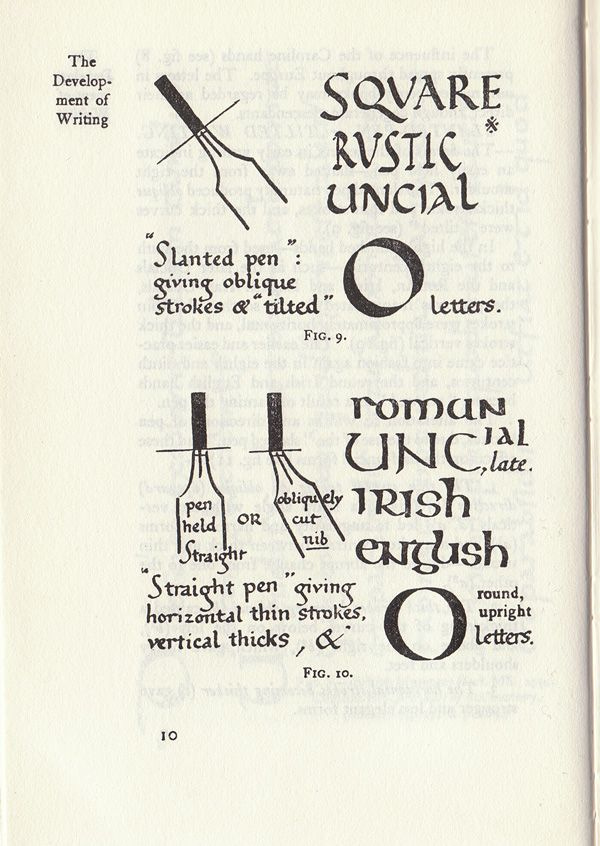 The
Develop-
ment of
Writing
SQVARE
RVSTIC *
UNCIAL
"Slanted pen":
giving oblique
strokes & "tilted" O letters.
FIG. 9.
pen
held
Straight
OR
obliquely
cut
nib
roman
UNCIAL, late.
IRISh
english
"Straight pen" giving
horizontal thin strokes,
vertical thicks, & O round,
upright
letters.
FIG. 10.
10